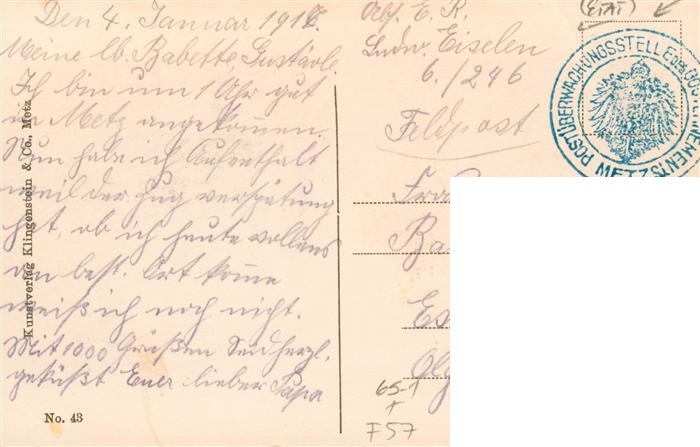 Den 4. Januar 1916.
Meine lb. Babette, Gustävle.
Ich bin um 1 Uhr gut
in Metz angekommen.
Nun habe ich Aufenthalt
weil der Zug verspätung
hat, ob ich heute vollens
an best. Ort komme
weiß ich noch nicht.
Mit 1000 Grüßen Seid herzl.
geküßt Euer lieber Papa
No. 43
Kunstverlag Klingenstein & Co., Metz
Abs. E. R.
Ludw. Eiselen
6./246
Feldpost
(ETAT)
POSTÜBERWACHUNGSSTELLE
METZ
65-1
+
F57